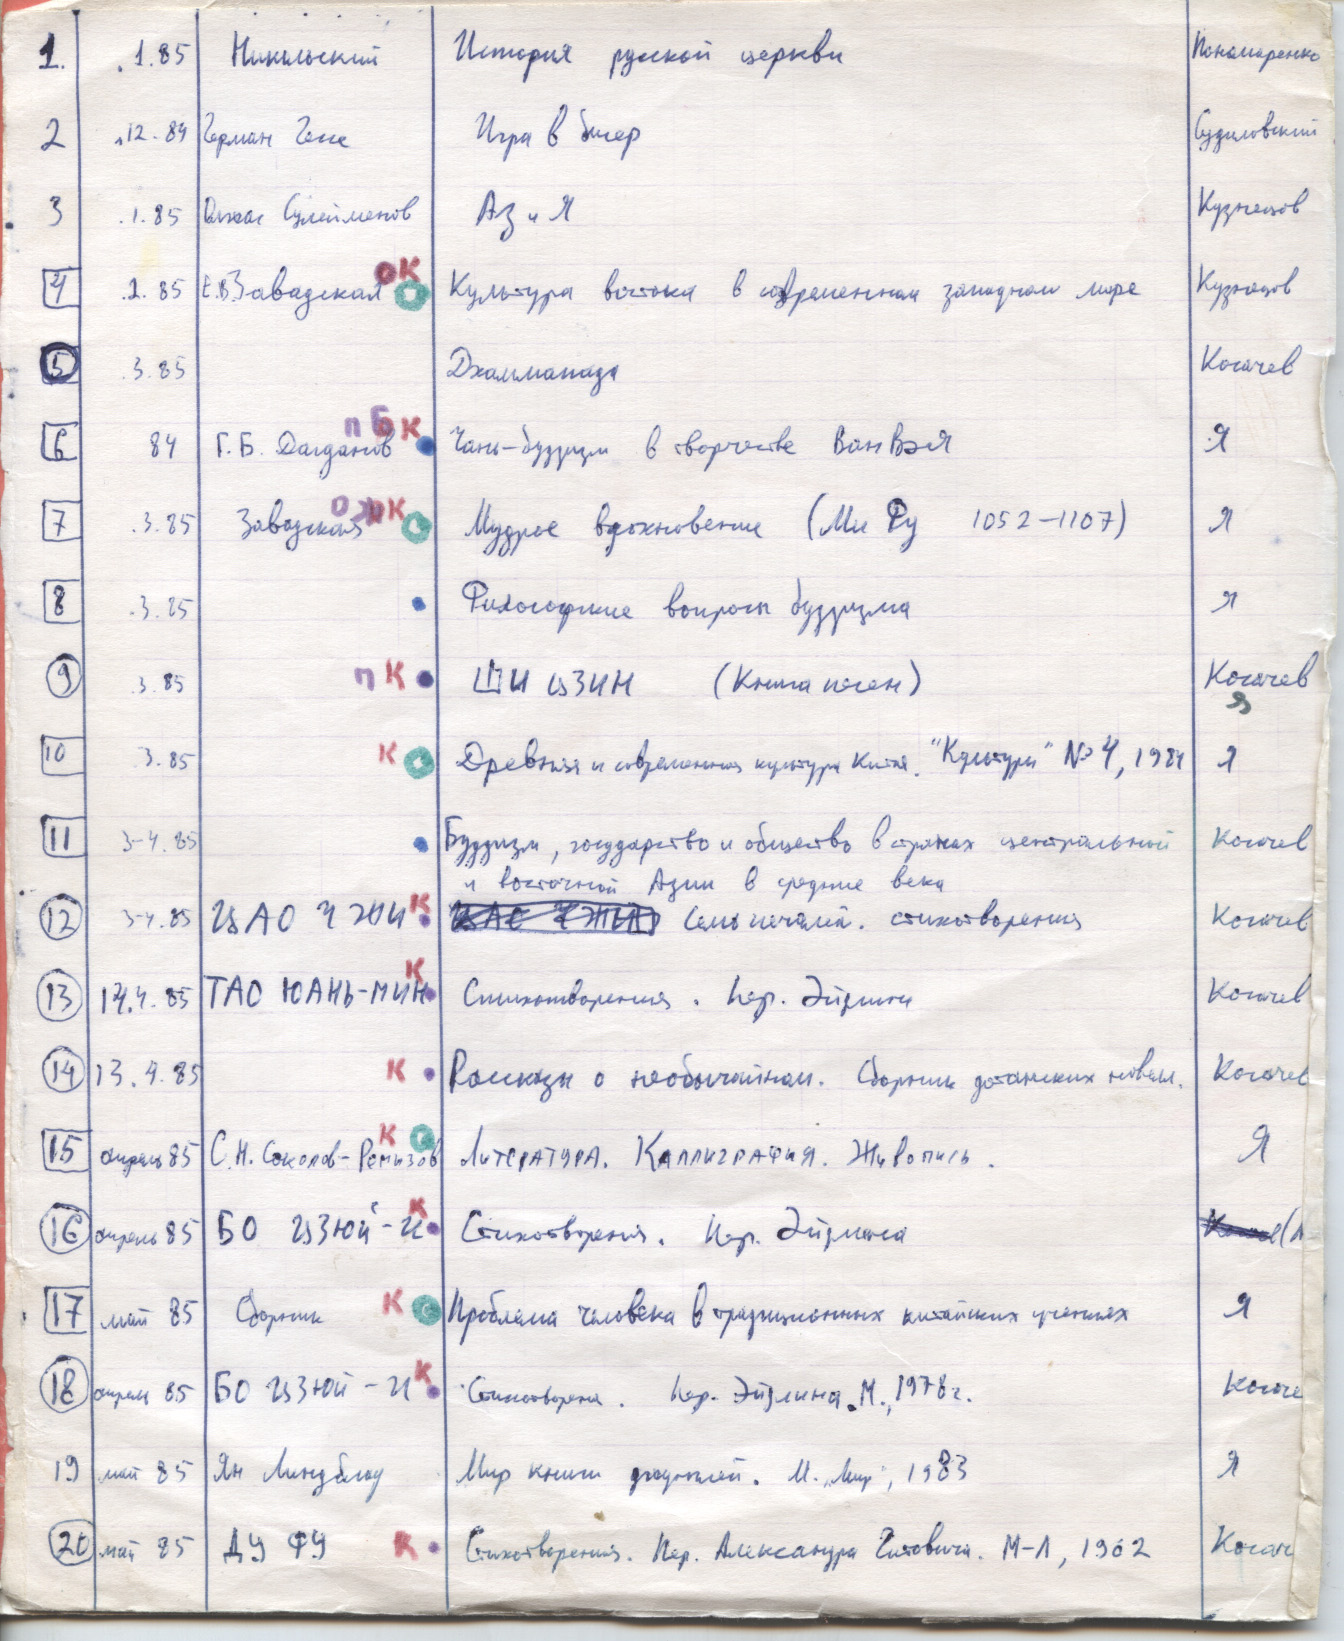 1. .1.85 Никольский История русской церкви Пономаренко
2 .12.84 Герман Гессе Игра в бисер Судиловский
3 .1.85 Олжас Сулейменов Аз и Я Кузнецов
ОК
4 .1.85 Е.В.Завадская Культура востока в современном западном мире Кузнецов
5 .3.85 Дхаммапада Когачев
П Б К
6 84 Г.Б. Дагданов Чань-буддизм в творчестве Ван Вэя Я
К
7 .3.85 Завадская Мудрое вдохновение (Ми Фу 1052-1107) Я
8 .3.85 Философские вопросы буддизма Я
9 .3.85 П К ШИ ЦЗИН (Книга песен) Когачев
Я
10 .3.85 К Древняя и современная культура Китая. "Культура" №4, 1984 Я
11 3-4.85 Буддизм, государство и общество в странах центральной Когачев
и восточной Азии в средние века
12 3-4.85 ЦАО ЧЖИ К ЦАО ЧЖИ Семь печалей. стихотворения Когачев
К
13 14.4.85 ТАО ЮАНЬ-МИН Стихотворения. Пер. Эйдлина Когачев
14 13.4.85 К Рассказы о необычайном. Сборник дотанских новелл. Когачев
К
15 апрель 85 С.Н. Соколов-Ремизов Литература. Каллиграфия. Живопись. Я
К
16 апрель 85 БО ЦЗЮЙ-И Стихотворения. Пер. Эйдлина
17 май 85 Сборник К Проблема человека в традиционных китайских учениях Я
К
18 апрель 85 БО ЦЗЮЙ-И Стихотворения. Пер. Эйдлина. М., 1978 г. Когаче
19 май 85 Ян Линдблад Мир М. "Мир", 1983 Я
20 май 85 ДУ ФУ К Стихотворения. Пер. Александра Гитовича. М-Л, 1962 Когач